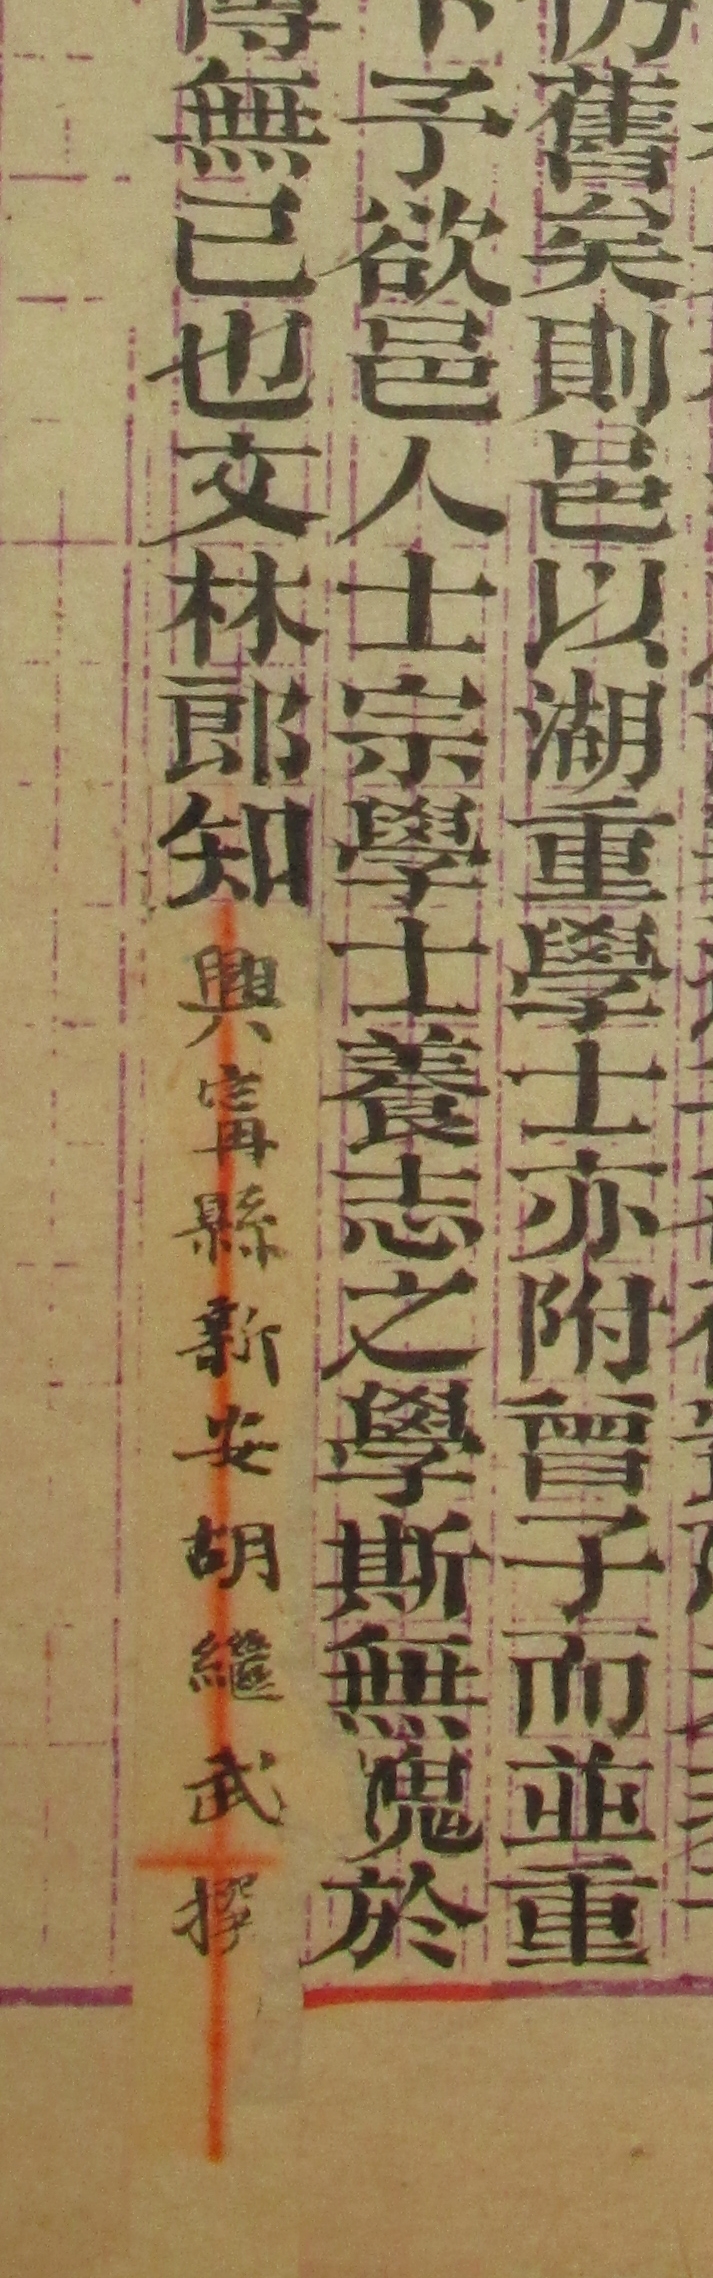 舊矣則邑以湖重學士亦附曾子而並重
子欲邑人士宗學士養志之學斯無愧於
傳無已也文林郎知興甯縣新安胡繼武撰